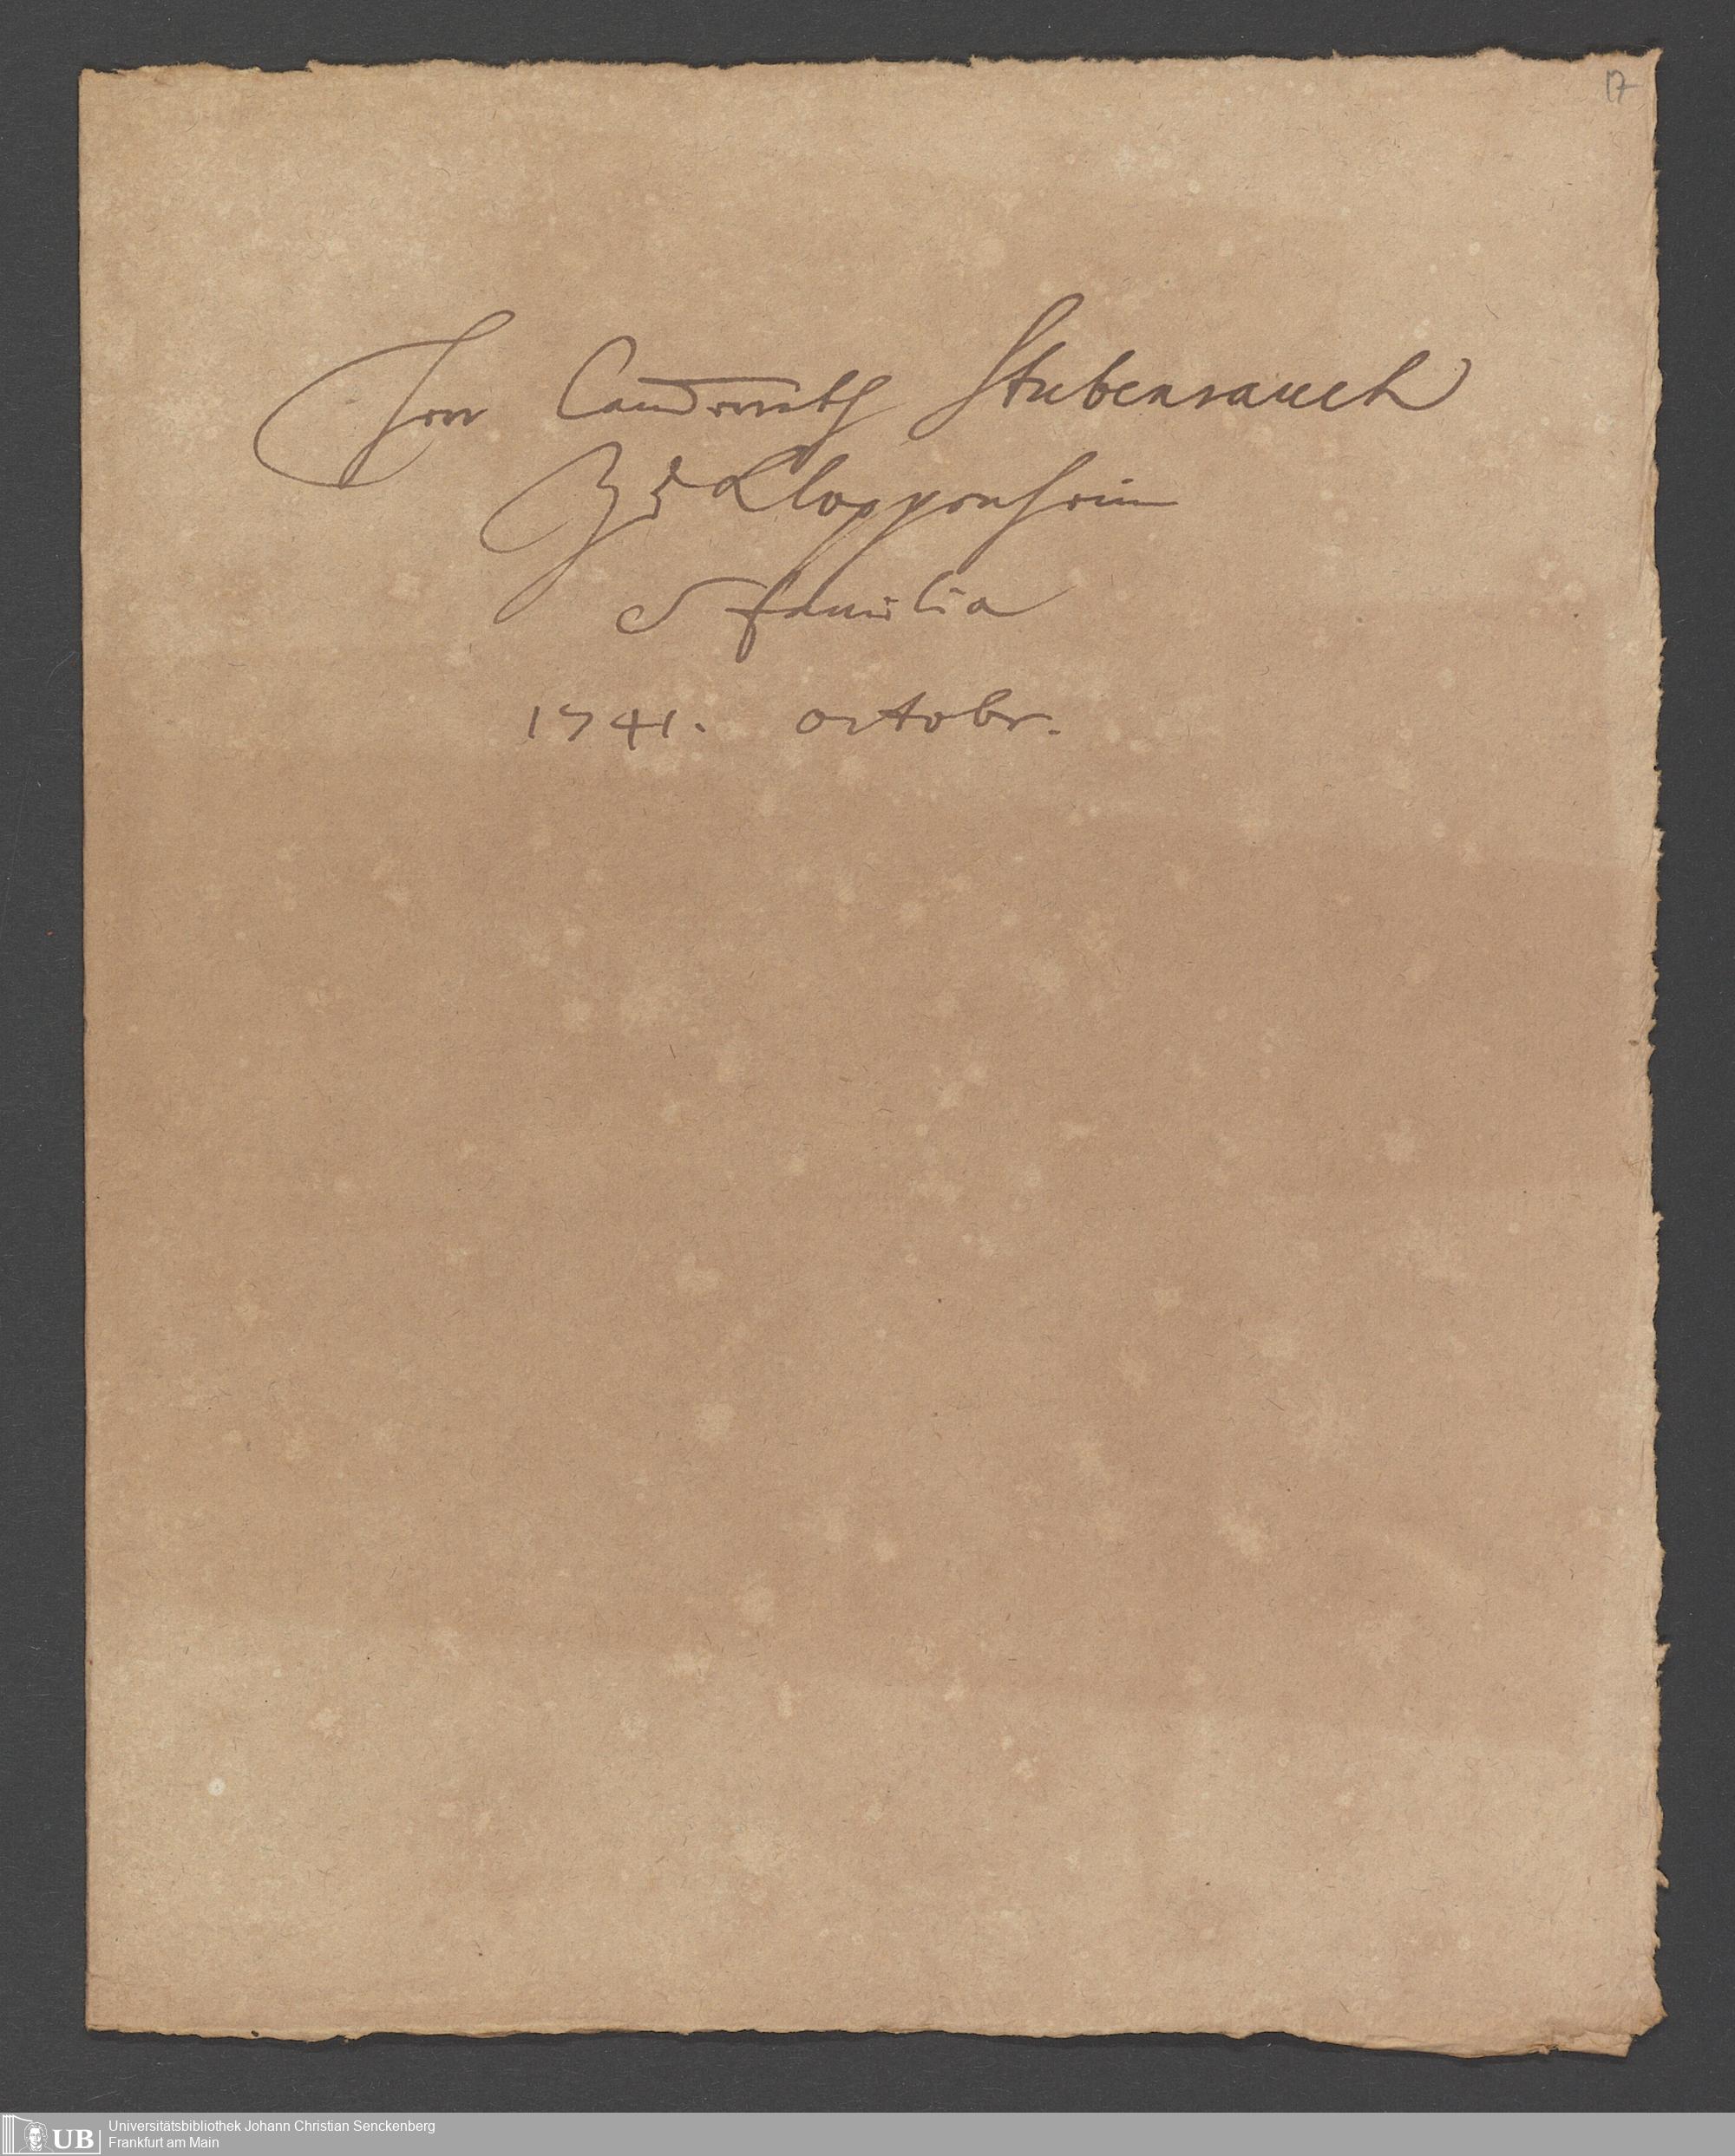 17
Herr Stubenrauch
Zu Kloppenheim
& familia
1741. octobr.
UB Universitätsbibliothek Johann Christian Senckenberg
Frankfurt am Main